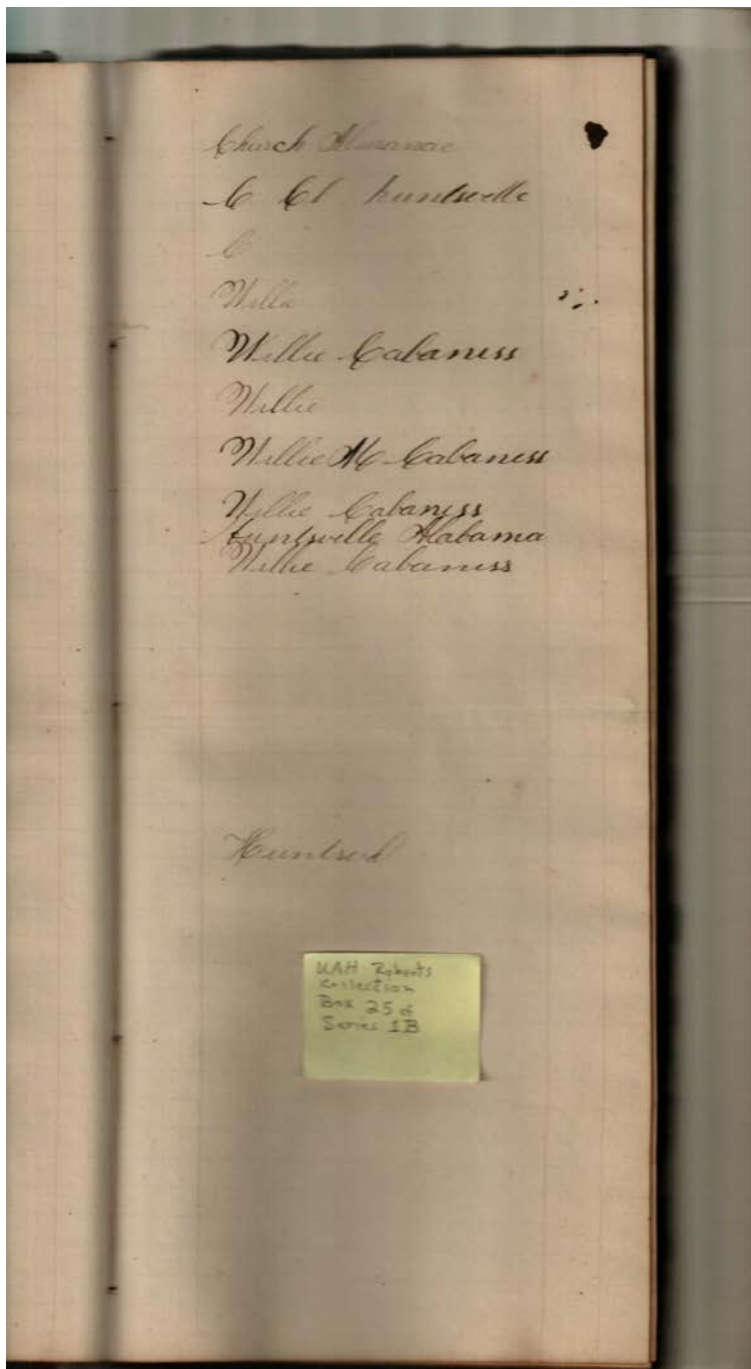 Church Almanac
C Cl huntsville
C
Willi
Willie Cabaniss
Willie
Willie M Cabaniss
Willie Cabaniss
Huntsville Alabama
Willie Cabaniss
Huntsvil
UAH Roberts
Collection
Box 25 of
Series 1B